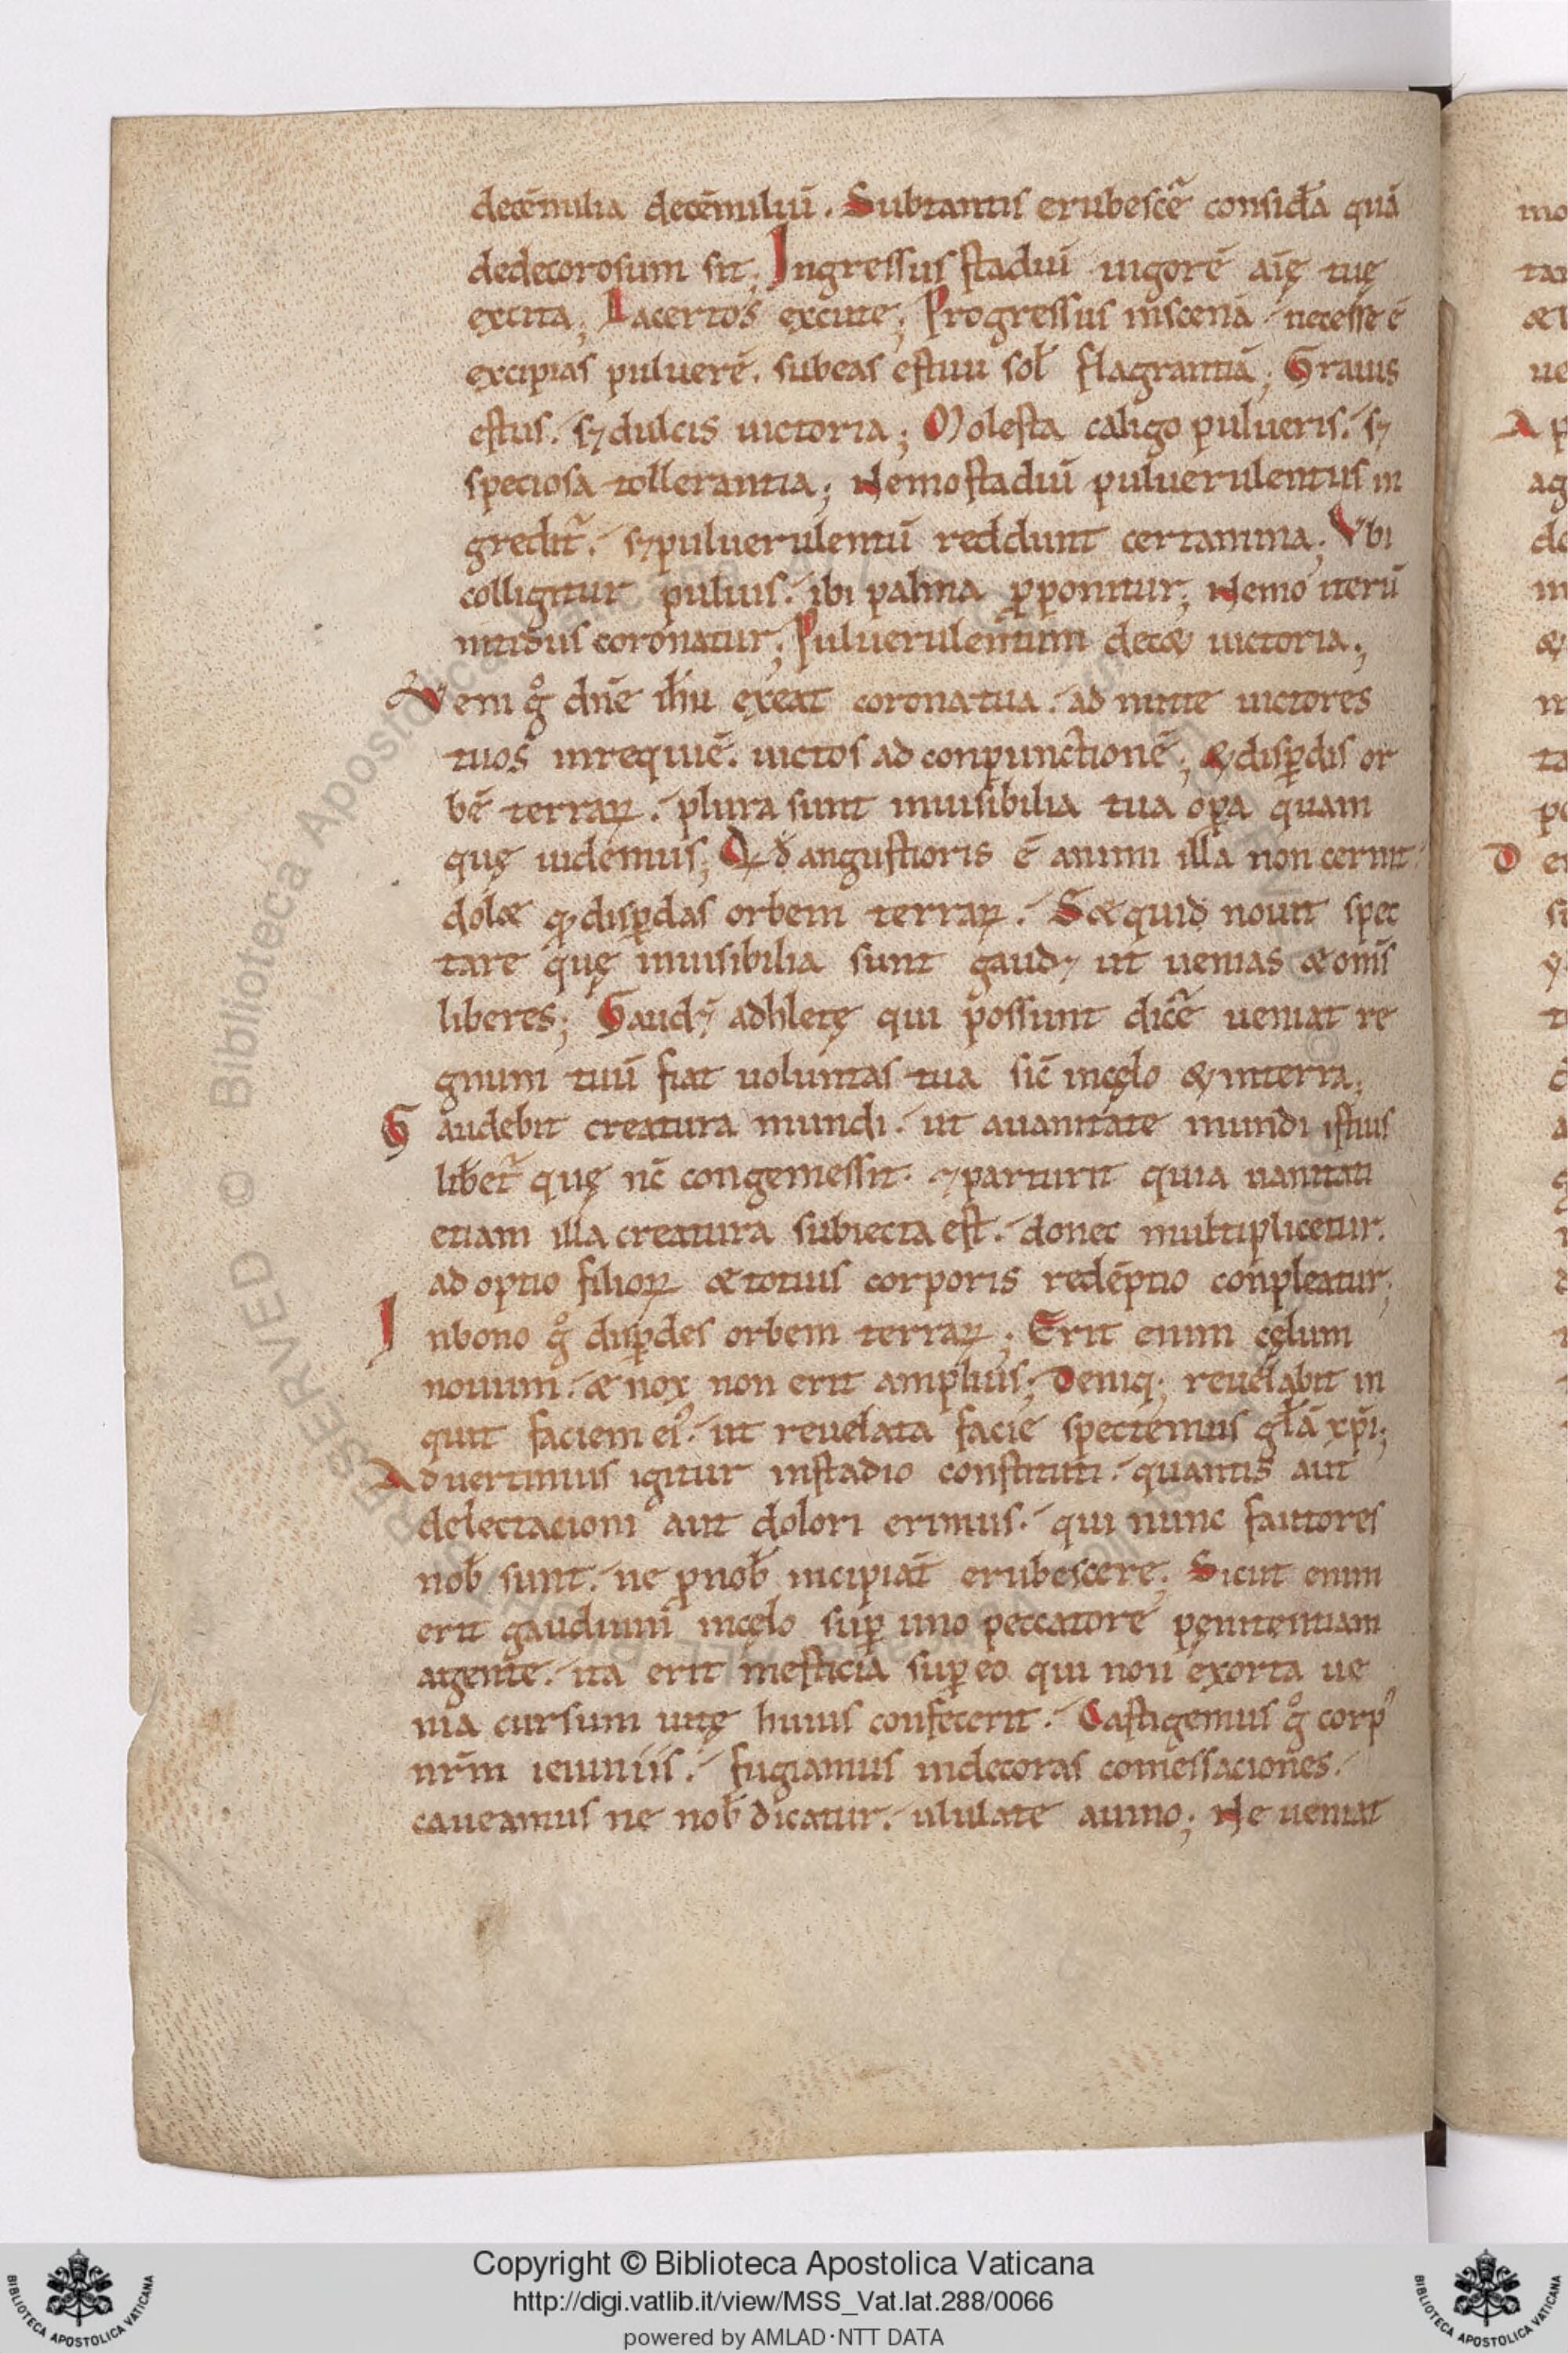 decēmilia decēmiliū. Subtantis erubescẽ consida᷒ quā
dedecorosum sit; Ingressus stadiū uigorē aīę tuę
excita; Lacertos excute; Progressus inscenā necesse ē
excipias puluerē. subeas estuu sol̄ flagrantiā; Grauis
estus. s; dulcis uictoria; Molesta caligo pulueris. s;
speciosa tollerantia; Nemo stadiū puluerulentus in
gredit᷑. s; puluerulentū reddunt certamina; Vbi
colligitur puluis. ibi palma ꝓponitur; Nemo iterū
nitidus coronatur; Puluerulentum decet uictoria;
Veni gͦ dn̄e ih̄u exeat corona tua. ad mitte uictores
tuos inrequiē. uictos ad conpunctionē; & disꝑdis or
bē terraꝝ. plura sunt inuisibilia tua oꝑa quam
quę uidemus; Qd̄ angustioris ē animi illa non cernit
dolet qđ disꝑdas orbem terraꝝ. Set quid nouit spec
tare quę inuisibilia sunt gaud; ut uenias et om̄s
liberes; Gaud; adhletę qui possunt dicẽ ueniat re
gnum tuū fiat uoluntas tua sic̄ incęlo & interra;
Gaudebit creatura mundi. ut auanitate mundi istius
libet᷑ quę nc̄ congemessit. & parturit quia uanitati
etiam illa creatura subiecta est. donec multiplicetur.
ad optio filioꝝ et totius corporis redēptio conpleatur;
Inbono gͦ disꝑdes orbem terraꝝ; Erit enim cęlum
nouum. et nox non erit amplius; Deniq; reuelabit in
quit faciem ei᷒. ut reuelata facie spectemus gl̄ā xp̄i;
Aduertimus igitur instadio constituti. quantis aut
delectacioni aut dolori erimus. qui nunc fautores
nob̄ sunt. ne ꝓnob̄ incipiāt erubescere; Sicut enim
erit gaudium incęlo suꝑ uno peccatore pęnitentiam
agente. ita erit mesticia suꝑ eo qui non exorta ue
nia cursum uitę huius confecerit. Castigemus gͦ corp᷒
nr̄m ieiuniis. fugiamus indecoras comessaciones.
caueamus ne nob̄ dicatur. ululate a uino; Ne ueniat
Copyright © Biblioteca Apostolica Vaticana
http://digi.vatlib.it/view/MSS_Vat.lat.288/0066
powered by AMLAD·NTT DATA
BIBLIOTECA APOSTOLICA VATICANA
BIBLIOTECA APOSTOLICA VATICANA